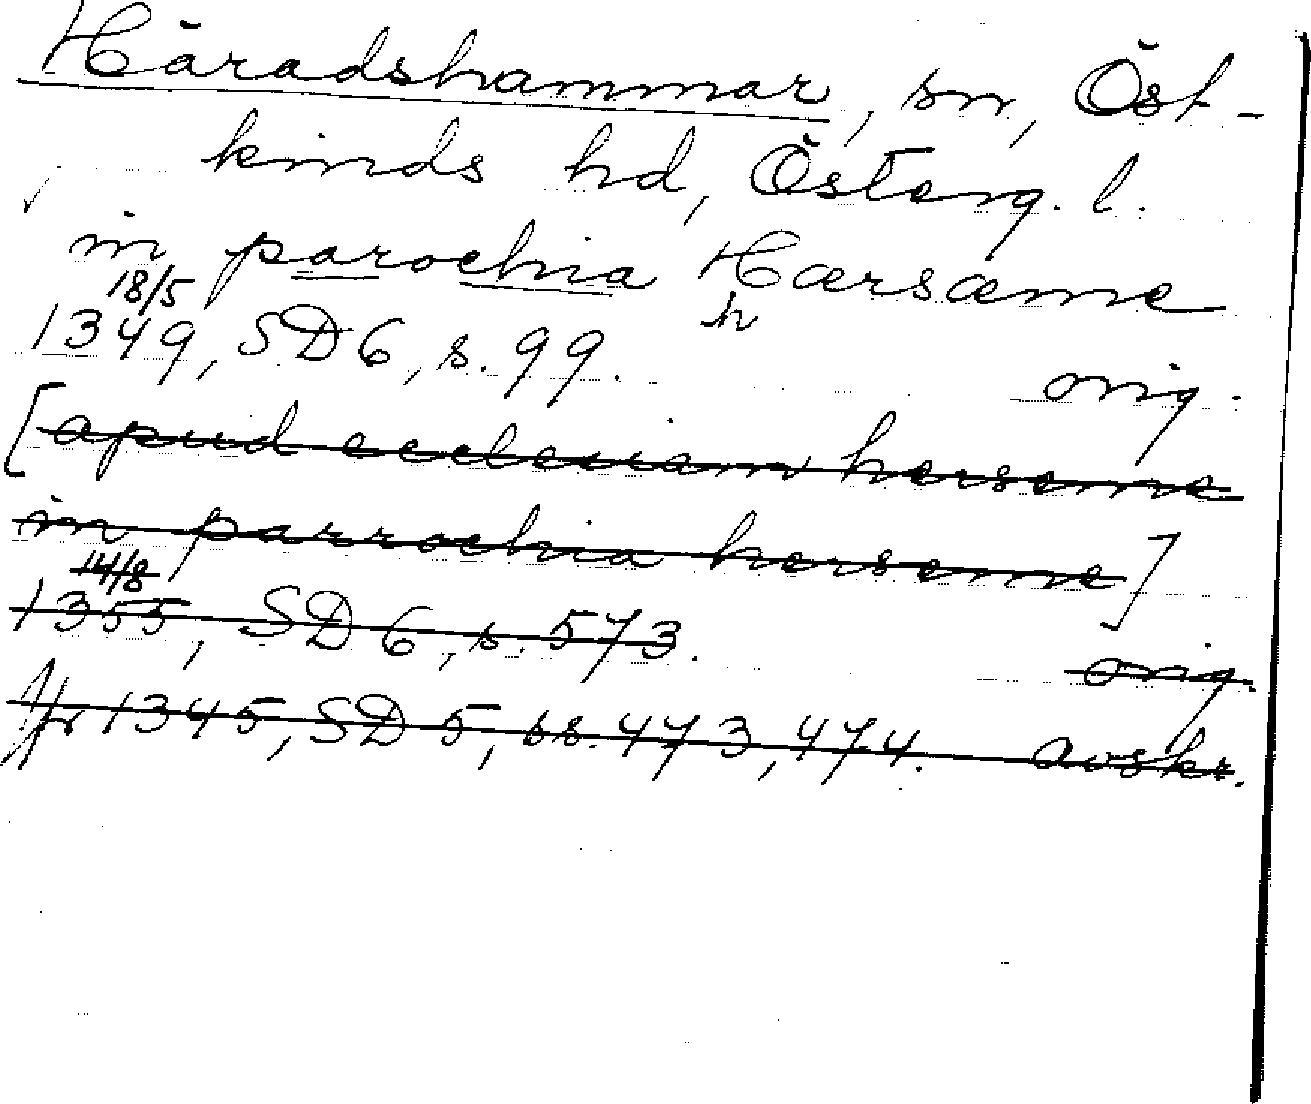 Häradshammar, sn, Öst-
kinds hd, Österg. l.
in parochia Hærsæme
h
18/5
1349, SD 6, s. 99. orig.
[apud ecclesiam herseme
in parrochia herseme]
14/8
1355, SD 6, s. 573. orig.
Jfr 1345, SD 5, ss. 473, 474. avskr.